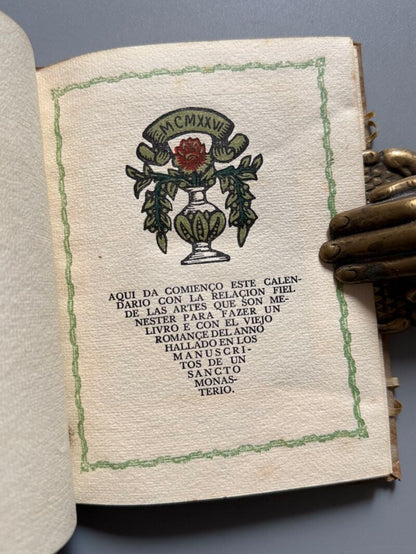 MCMXXVI
AQUI DA COMIENÇO ESTE CALEN-
DARIO CON LA RELACION FIEL
DE LAS ARTES QUE SON ME-
NESTER PARA FAZER UN
LIVRO E CON EL VIEJO
ROMANÇE DEL ANNO
HALLADO EN LOS
MANUSCRI-
TOS DE UN
SANCTO
MONAS-
TERIO.